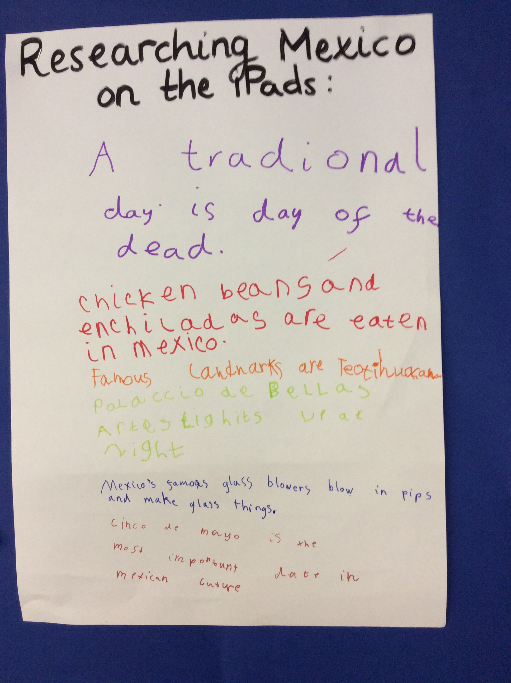 Researching Mexico
on the iPads:
A tradional
day is day of the
dead.
chicken beans and
enchiladas are eaten
in mexico.
Famous Landmarks are Teotihuacan
Palaccio de Bellas
Artes Lighits up at
night
Mexico's famous glass blowers blow in pips
and make glass things.
Cinco de mayo is the
most important date in
mexican cuture